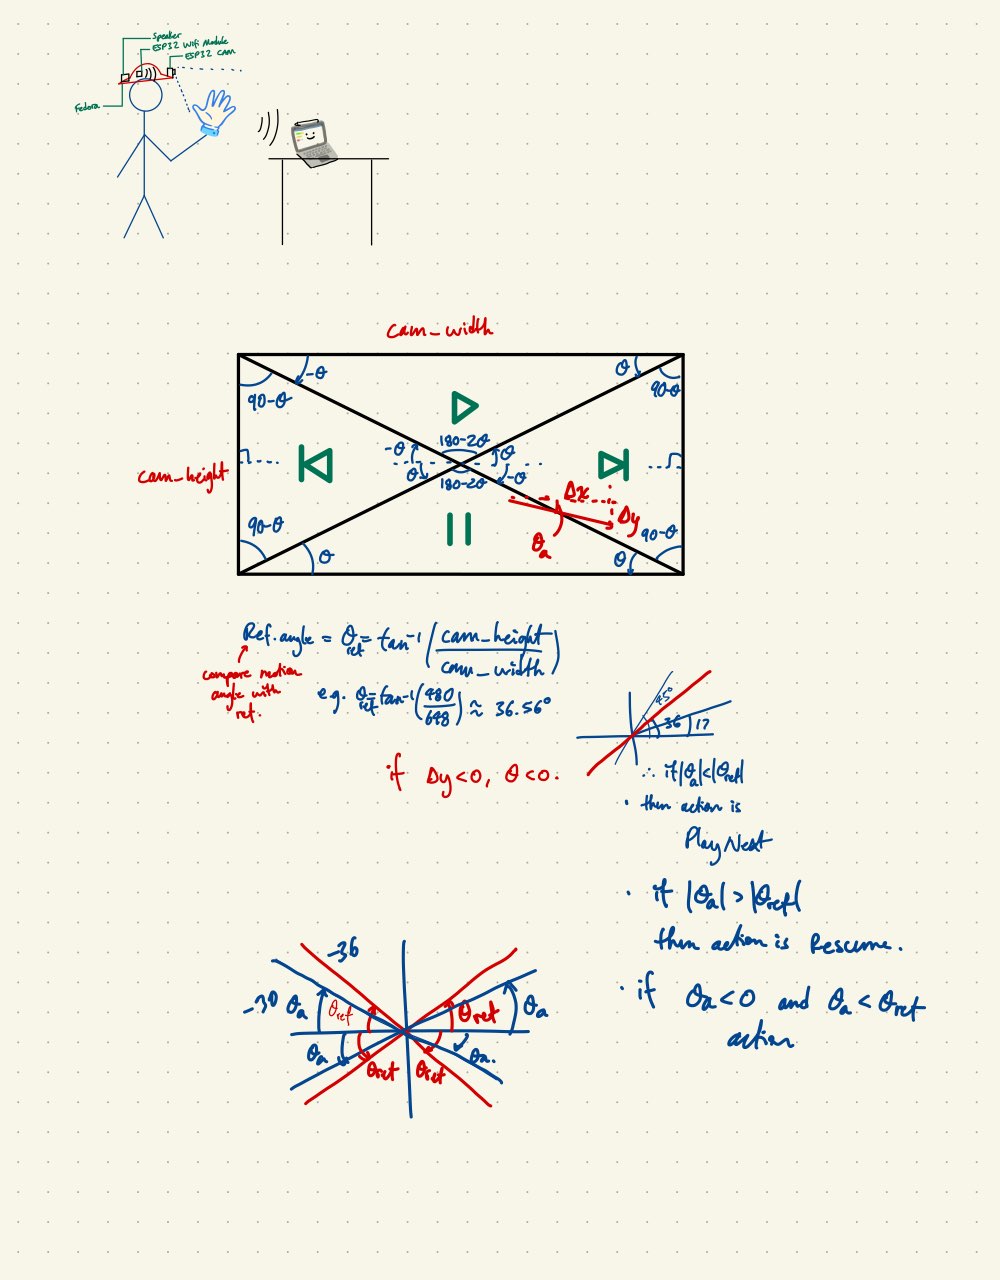 Speaker
ESP32 Wifi Module
ESP32 CAM
Fedora
cam_width
-θ
θ
90-θ
90-θ
-θ
180-2θ
θ
θ
180-2θ
-θ
cam_height
Δx
Δy
90-θ
90-θ
θa
θ
θ
Ref. angle = θref = tan⁻¹(cam_height/cam_width)
compare motion
angle with
ref.
e.g. θref = tan⁻¹(480/648) ≈ 36.56°
45°
36
17
if Δy<0, θ<0.
∴ if |θa|<|θref|
· then action is
Play Next
· if |θa|>|θref|
then action is Rescume.
· if θa<0 and θa<θref
action
-36
-30 θa
θref
θref
θa
θa
θref
θref
θa.